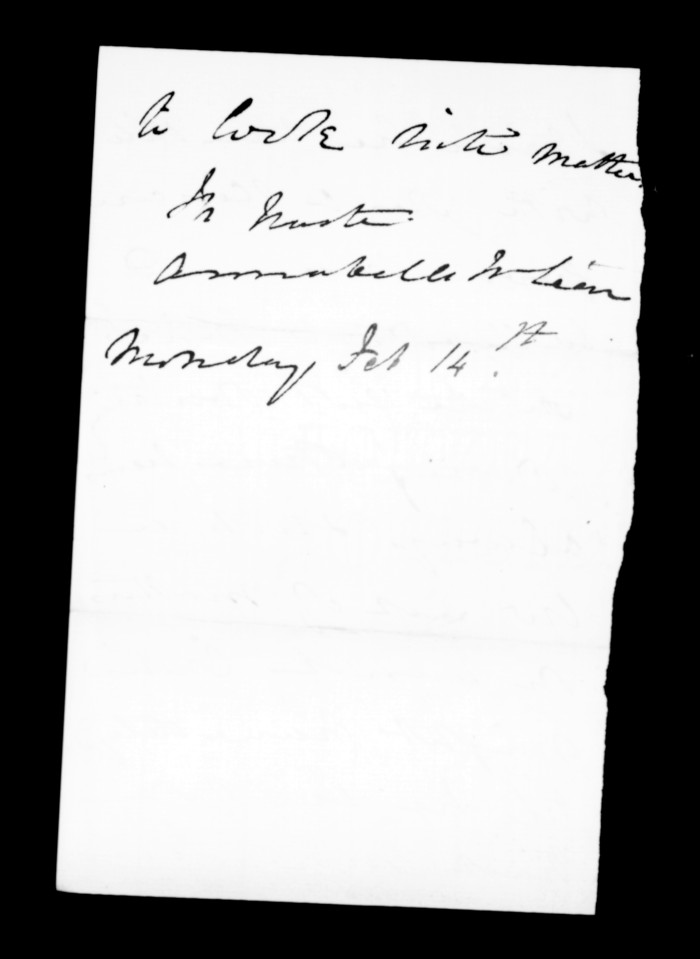 to look into matters
In haste
Annabella McLean
Monday Feb 14th.